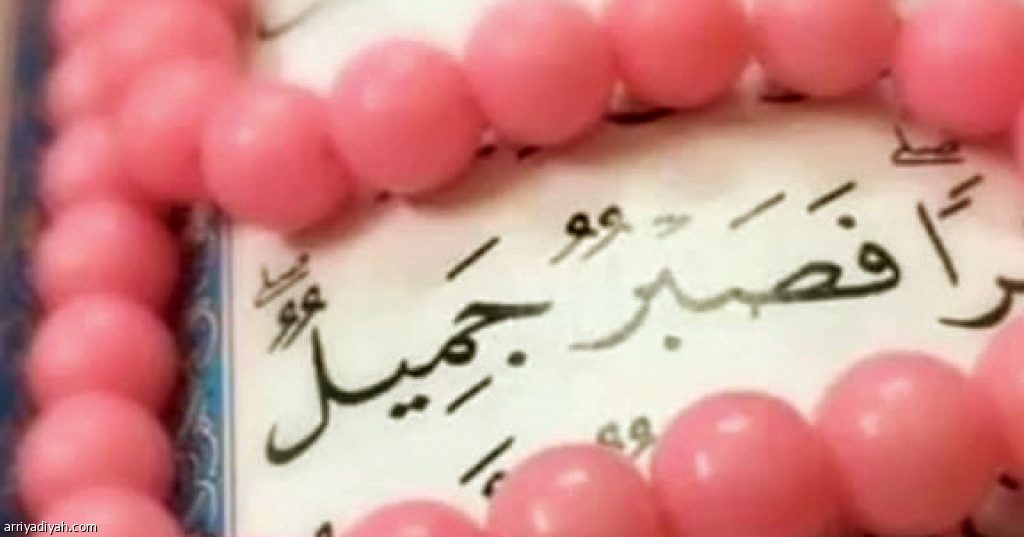 رًا ۖ فَصَبْرٌ جَمِيلٌ ۖ
arriyadiyah.com